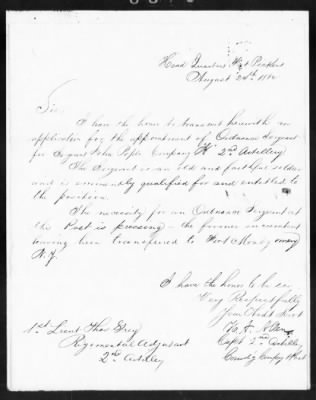 Head Quarters Fort
August 24th
Sir,
I have the honor to transmit herewith an
application for the appointment of Ordnance Sergeant
for Sergeant John Company "K" 2nd Artillery
The Sergeant is an old and faithful soldier
and is eminently qualified for and entitled to
the position.
The necessity for an Ordnance Sergeant at
this Post is pressing – the former incumbent
having been transferred to Fort Montgomery
N.Y.
I have the honor to be sir
Very Respectfully
Your Obdt Servt
Capt 2nd Artillery
Comdg Company & Post
1st Lieut Thos Grey
Regimental Adjutant
2nd Artillery